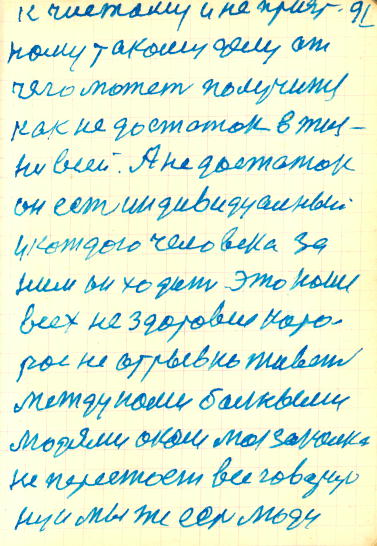 к чистому и не прият- 91
ному такому делу от
чего может получится
как не достаток в жиз-
ни всей. А не достаток
он ест индивидуалный
у каждого человека за
ним он ходит Это наше
всех не здоровия кото-
рое не отрывно живет
между нами болными
людями окол мол
не перестост все говорю
ну и мы же сер люди